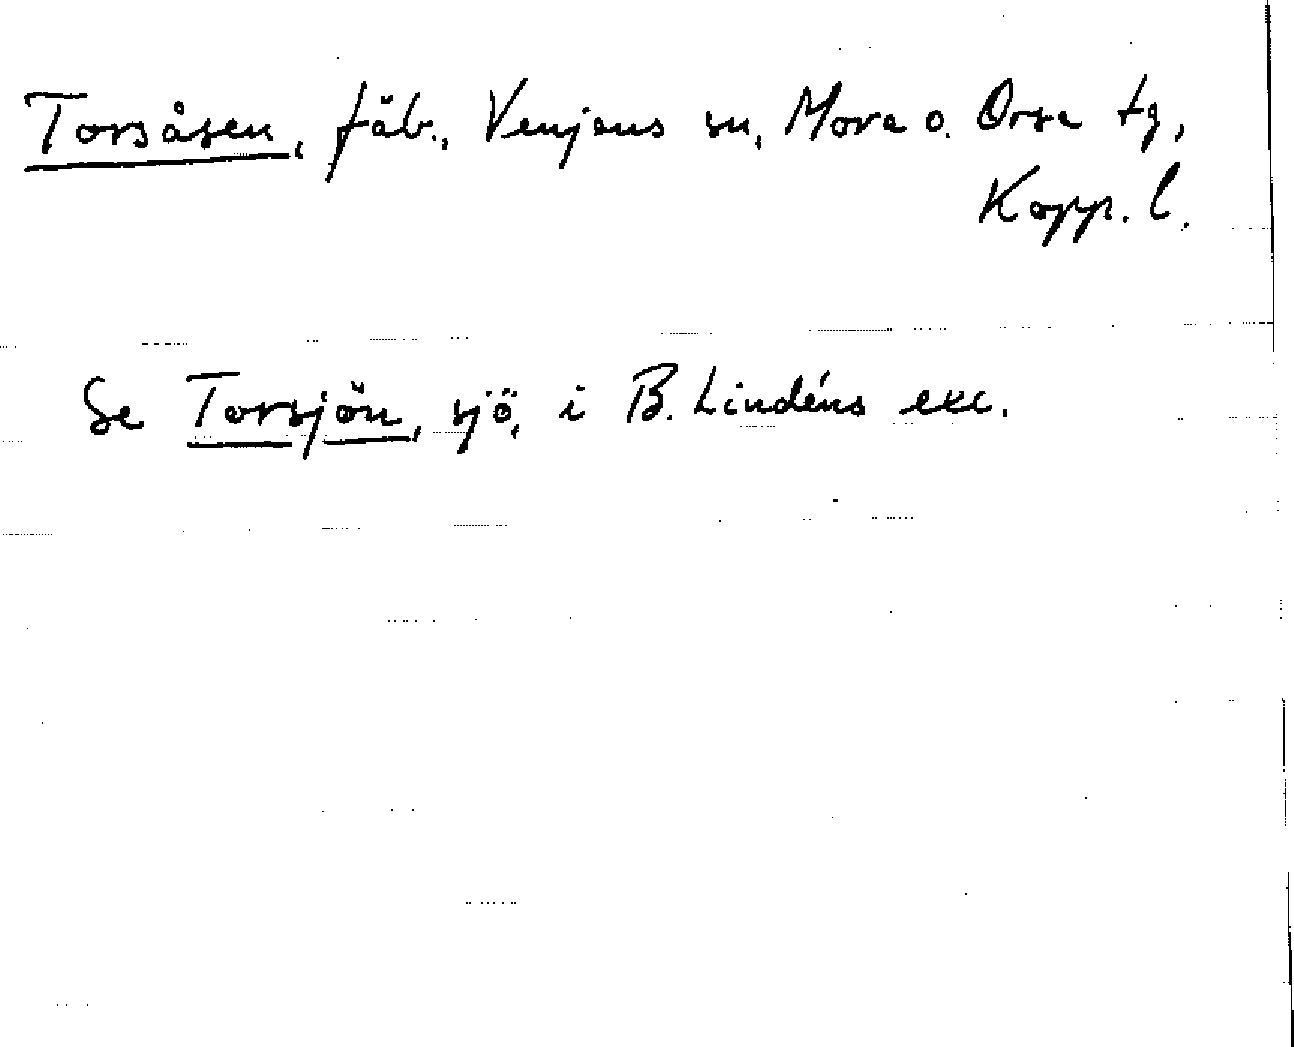 Torsåsen, fäb., Venjans sn, Mora o. Orsa tg,
Kopp. l.
Se Torsjön, sjö, i B. Lindéns exc.